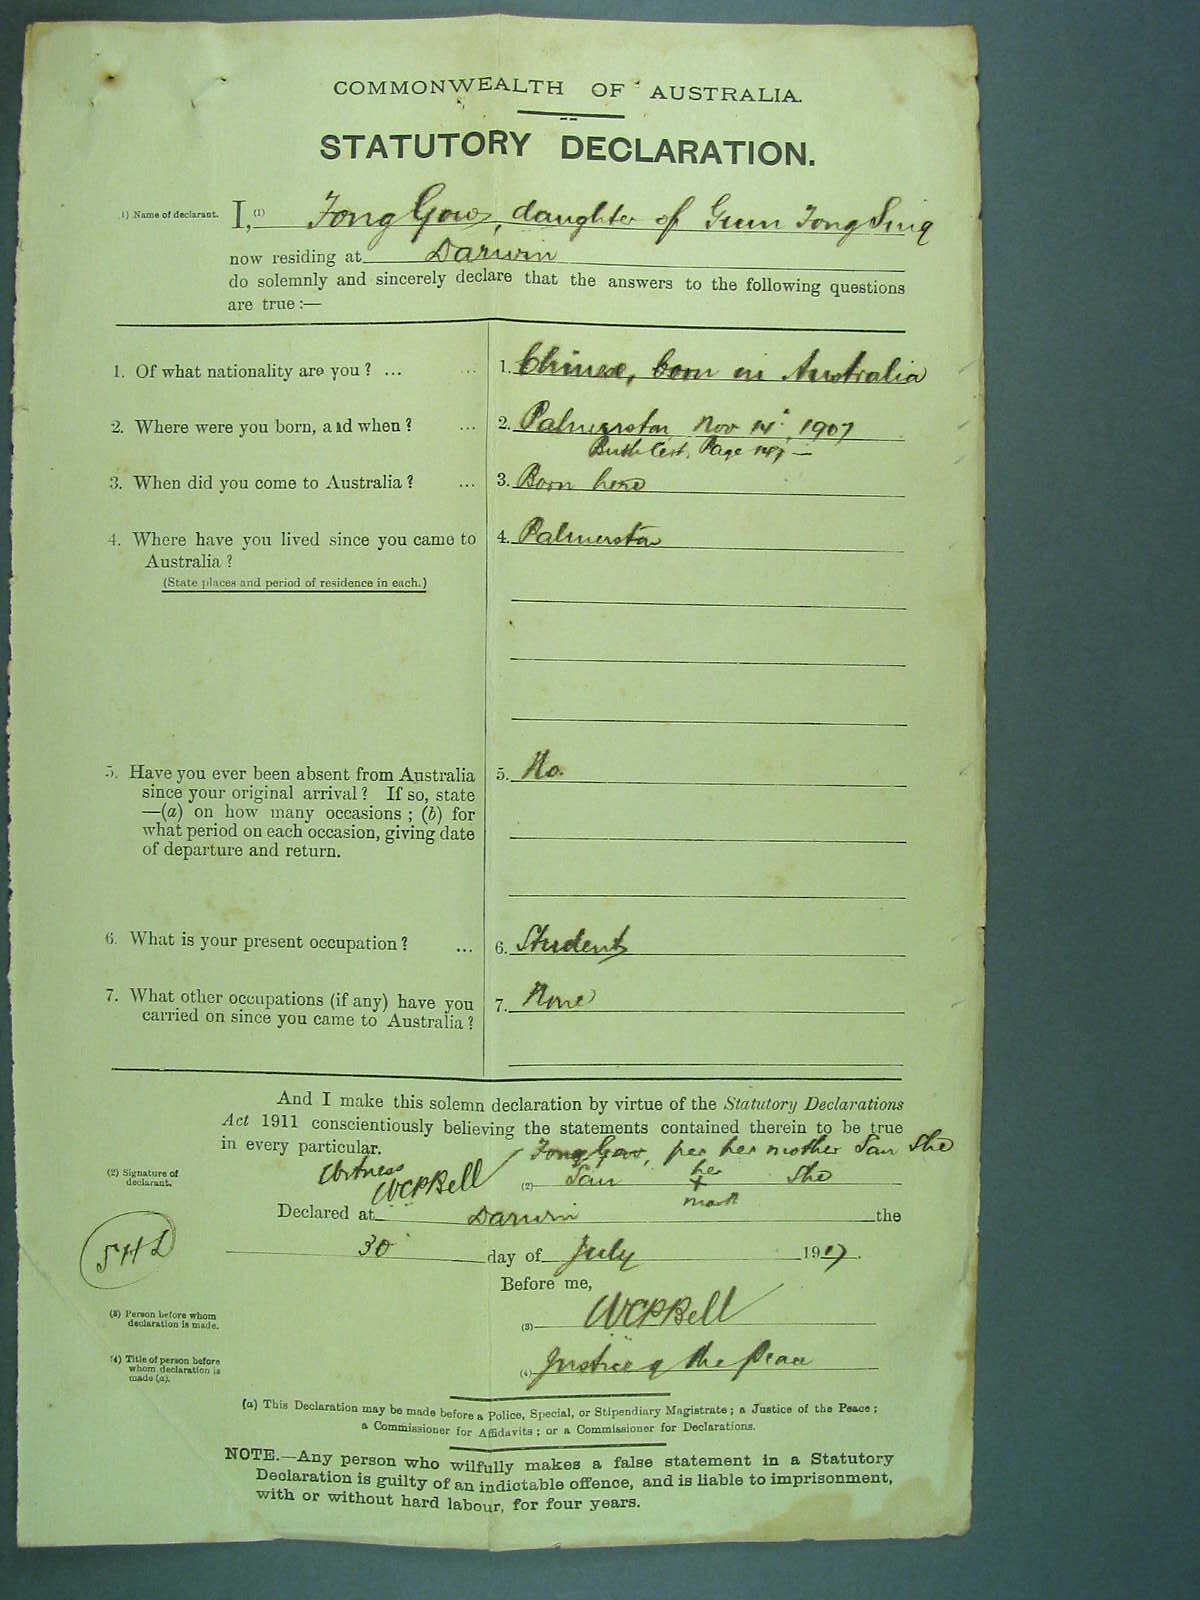 COMMONWEALTH OF AUSTRALIA.
STATUTORY DECLARATION.
(1) Name of declarant. I, (1) Fong Gow, daughter of Gum Fong Sing
now residing at Darwin
do solemnly and sincerely declare that the answers to the following questions
are true:—
1. Of what nationality are you? ... ... 1. Chinese, born in Australia
2. Where were you born, and when? ... 2. Palmerston Nov 14, 1907
Birth Cert. Page 147 —
3. When did you come to Australia? ... 3. Born here
4. Where have you lived since you came to 4. Palmerston
Australia?
(State places and period of residence in each.)
5. Have you ever been absent from Australia 5. No.
since your original arrival? If so, state
—(a) on how many occasions; (b) for
what period on each occasion, giving date
of departure and return.
6. What is your present occupation? ... 6. Student
7. What other occupations (if any) have you 7. None
carried on since you came to Australia?
And I make this solemn declaration by virtue of the Statutory Declarations
Act 1911 conscientiously believing the statements contained therein to be true
in every particular. Fong Gow, per her mother San She
(2) Signature of declarant. Witness WCPBell (2) San her She
+
mark
Declared at Darwin the
30 day of July 1917.
Before me,
(3) Person before whom declaration is made. (3) WCPBell
(4) Title of person before whom declaration is made (a). (4) Justice of the Peace
(a) This Declaration may be made before a Police, Special, or Stipendiary Magistrate; a Justice of the Peace;
a Commissioner for Affidavits; or a Commissioner for Declarations.
NOTE.—Any person who wilfully makes a false statement in a Statutory
Declaration is guilty of an indictable offence, and is liable to imprisonment,
with or without hard labour, for four years.